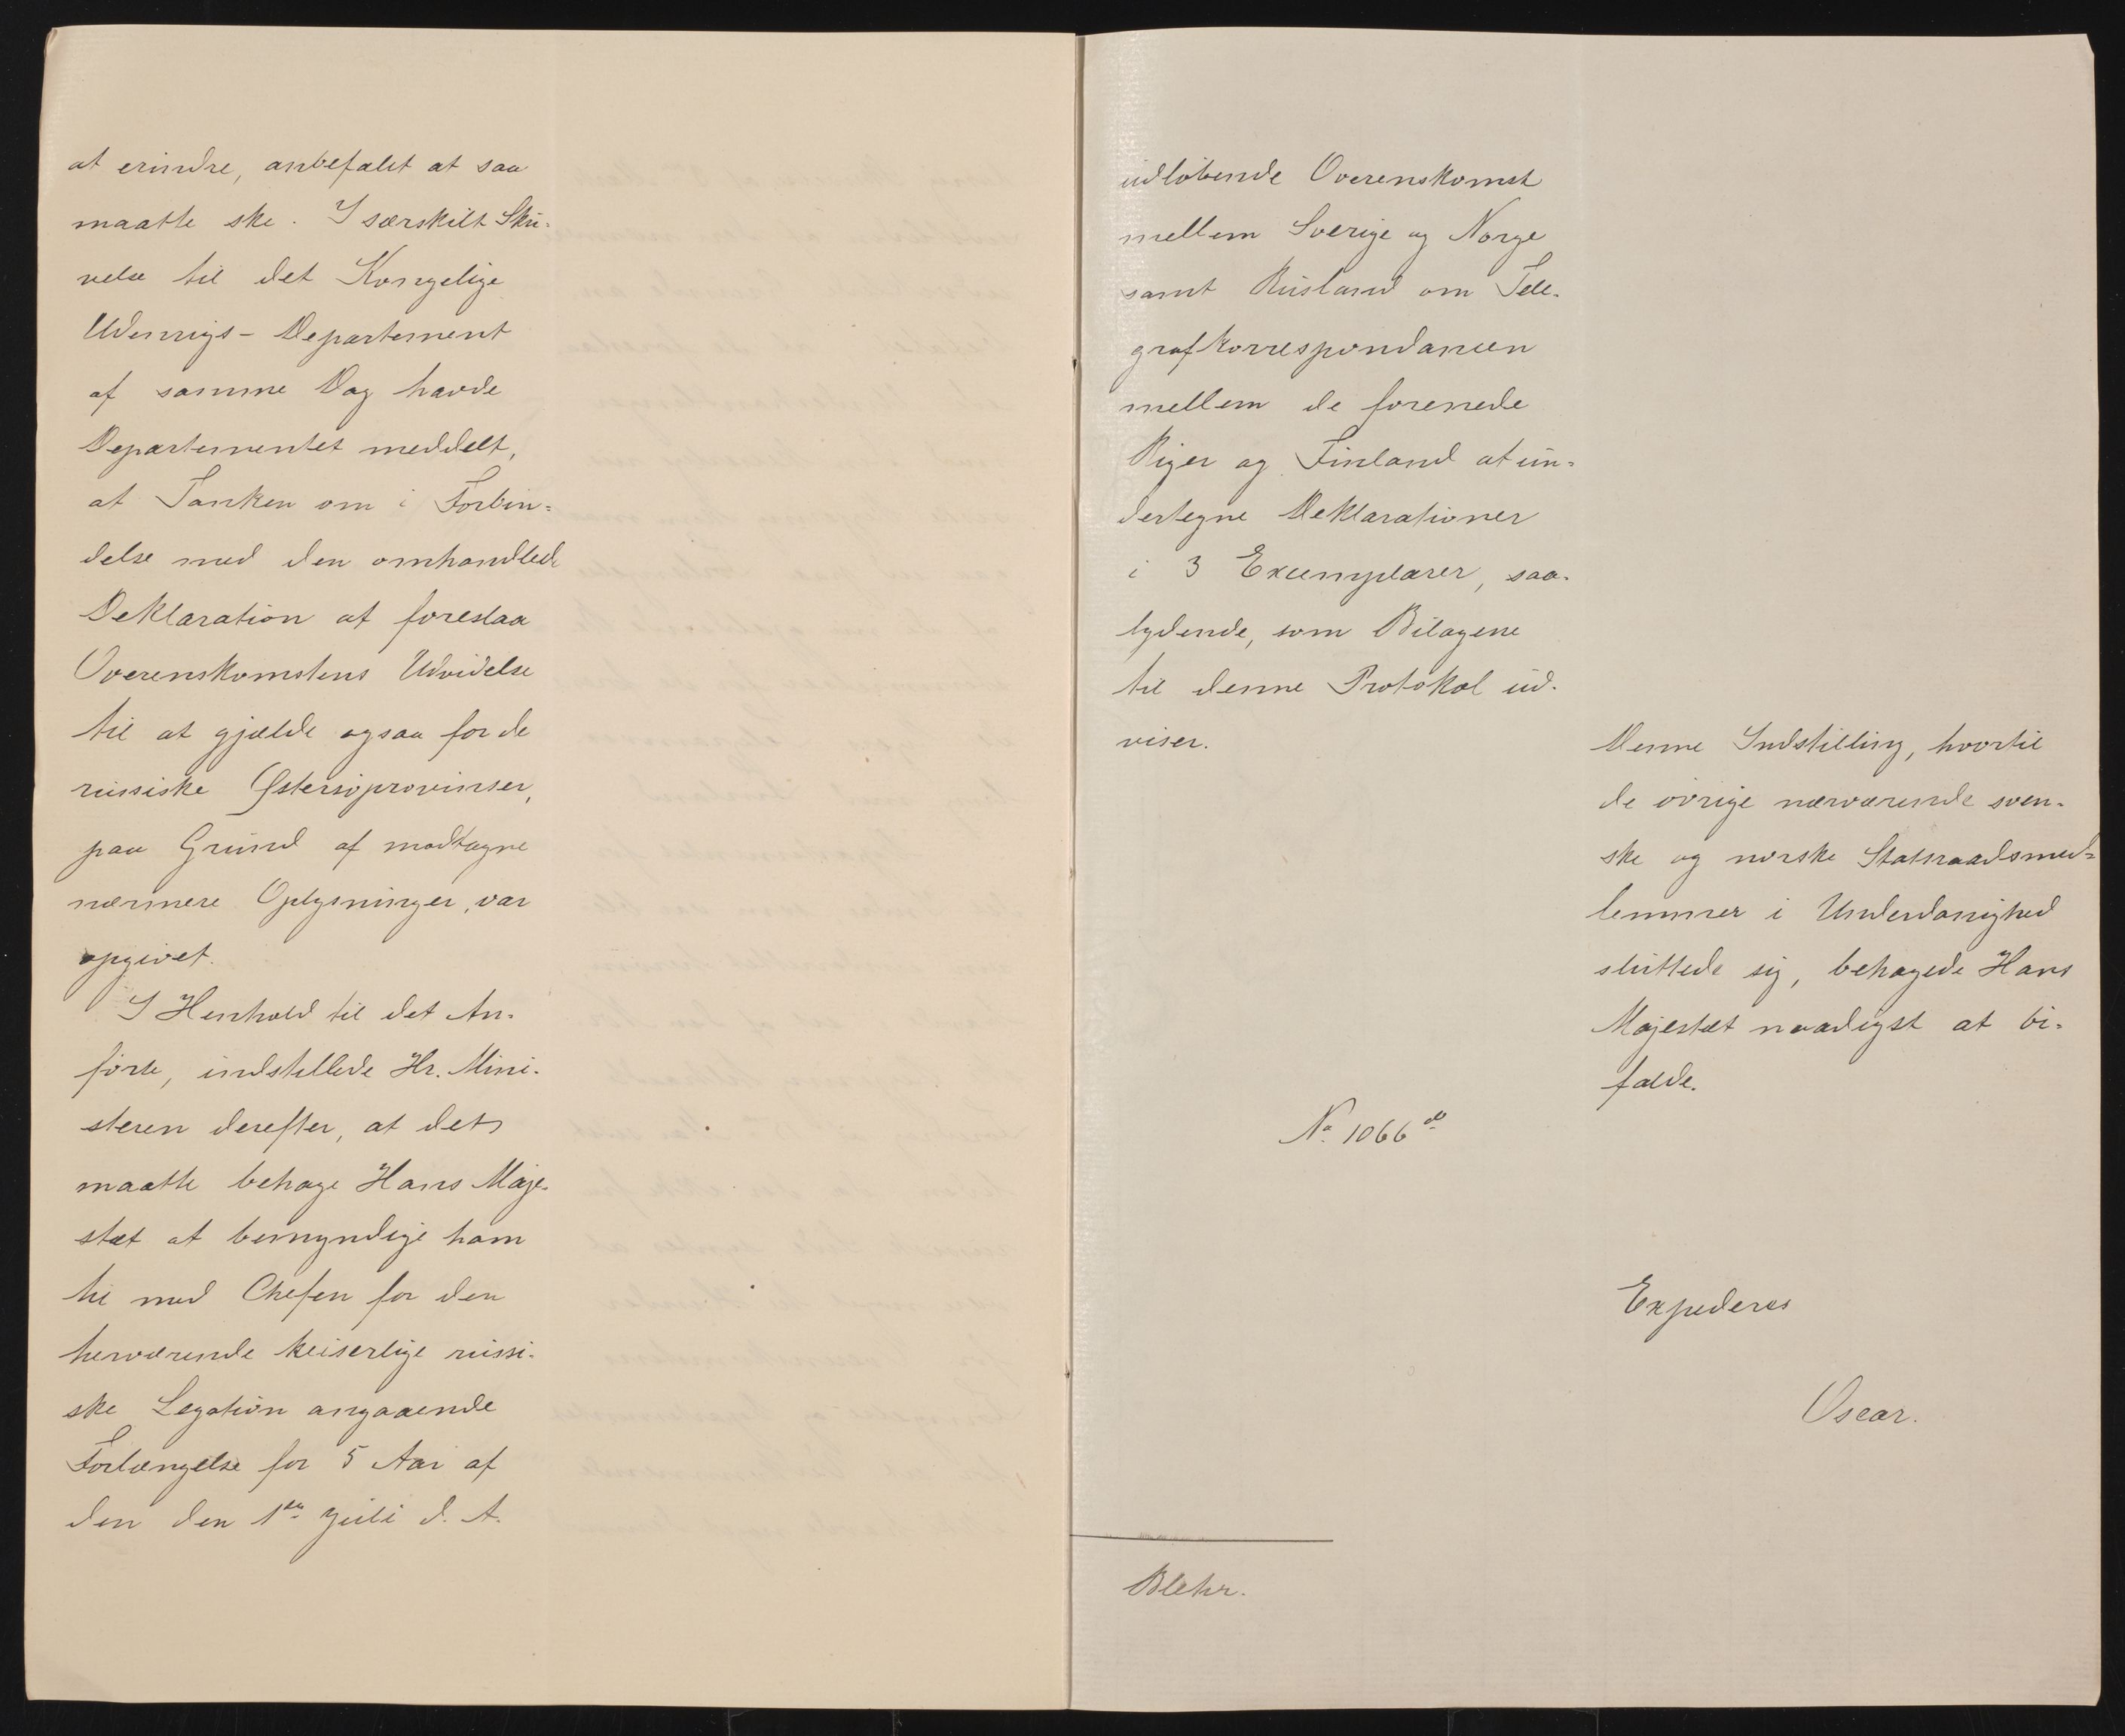 at erindre, anbefalet at saa
maatte ske. I særskilt Skri-
velse til det Kongelige
Udenrigs-Departement
af samme Dag havde
Departementet meddelt,
at Tanken om i Forbin-
delse med den omhandlede
Deklaration at foreslaa
Overenskomstens Udvidelse
til at gjælde ogsaa for de
russiske Østersöprovinser,
paa Grund af modtagne
nærmere Oplysninger, var
opgivet.
I Henhold til det An-
förte, indstillede Hr. Mini-
steren derefter, at det
maatte behage Hans Maje-
stæt at bemyndige ham
til med Chefen for den
herværende keiserlige russi-
ske Legation angaaende
Forlængelse for 5 Aar af
den den 1ste Juli d. A.
udlöbende Overenskomst
mellem Sverige og Norge
samt Rusland om Tele-
grafkorrespondancen
mellem de forenede
Riger og Finland at un-
dertegne Deklarationer
i 3 Exemplarer, saa-
lydende, som Bilagene
til denne Protokol ud-
viser.
Denne Indstilling, hvortil
de övrige nærværende sven-
ske og norske Statsraadsmed-
lemmer i Underdanighed
sluttede sig, behagede Hans
Majestæt naadigst at bi-
falde.
No. 1066
Expederes
Oscar.
Blehr.